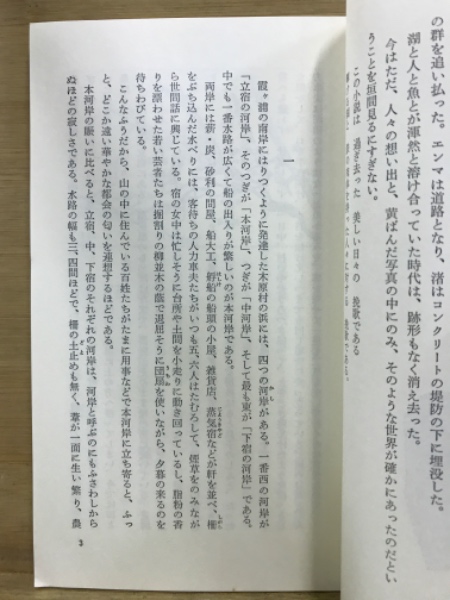 の群を追い払った。エンマは道路となり、渚はコンクリートの堤防の下に埋没した。
湖と人と魚とが渾然と溶け合っていた時代は、跡形もなく消え去った。
今はただ、人々の想い出と、黄ばんだ写真の中にのみ、そのような世界が確かにあったのだとい
うことを垣間見るにすぎない。
この小説は 過ぎ去った 美しい日々の 挽歌である
一
霞ヶ浦の南岸にはりつくように発達した木原村の浜には、四つの河岸がある。一番西の河岸が
「立宿の河岸」、そのつぎが「本河岸」、つぎが「中河岸」、そして最も東が「下宿の河岸」である。
中でも一番水路が広くて船の出入りが繁しいのが本河岸である。
両岸には薪・炭、砂利の問屋、船大工、艀船の船頭の小屋、雑貨店、蒸気宿などが軒を並べ、柵
をぶち込んだ水べりには、客待ちの人力車夫たちがいつも五、六人はたむろして、煙草をのみなが
ら世間話に興じている。宿の女中は忙しそうに台所や土間を小走りに動き回っているし、脂粉の香
りを漂わせた若い芸者たちは掘割りの柳並木の蔭で退屈そうに団扇を使いながら、夕暮の来るのを
待ちわびている。
こんなふうだから、山の中に住んでいる百姓たちがたまに用事などで本河岸に立ち寄ると、ふっ
と、どこか遠い華やかな都会の匂いを連想するほどである。
本河岸の賑いに比べると、立宿、中、下宿のそれぞれの河岸は、河岸と呼ぶのにもふさわしから
ぬほどの寂しさである。水路の幅も三、四間ほどで、柵の土止めも無く、葦が一面に生い繁り、農
3